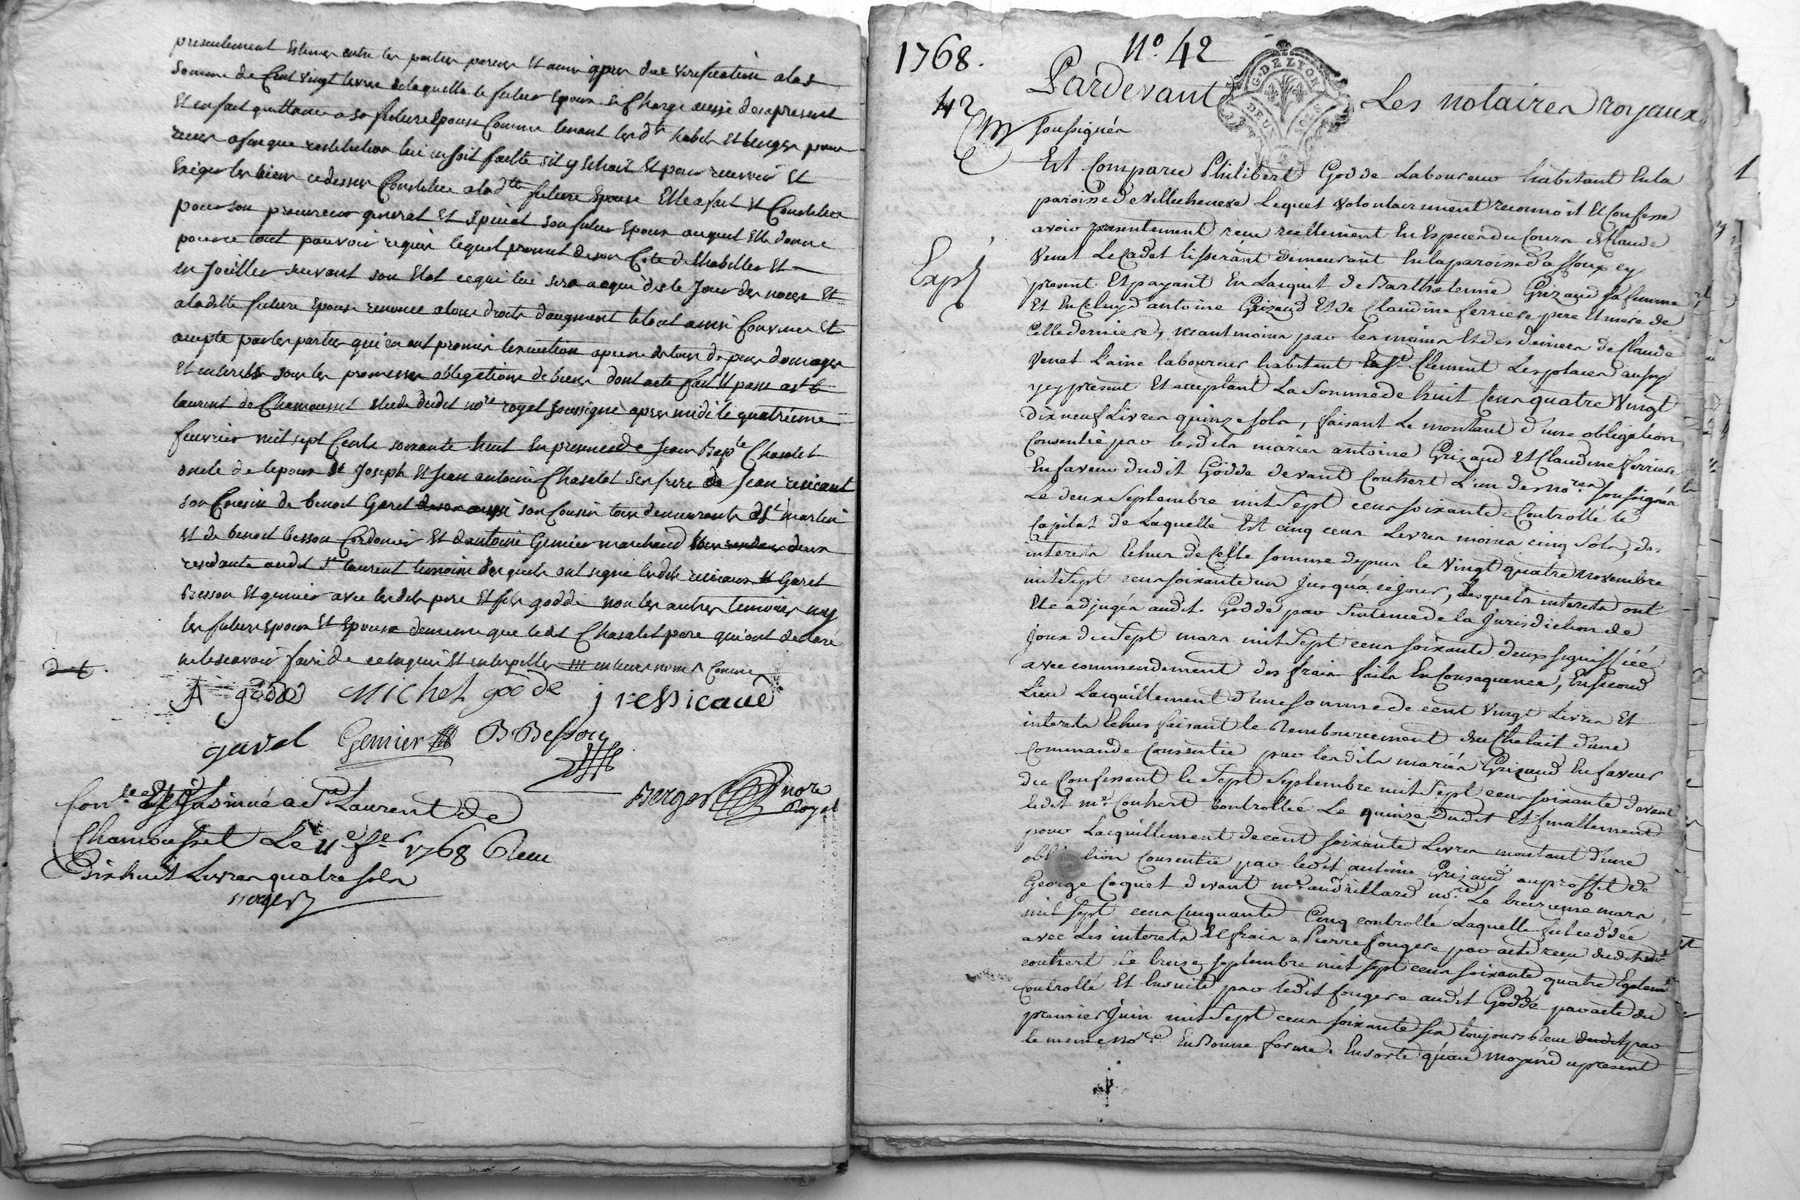 presentement estimés entre les parties par eux et amis après due verification a la
somme de Cent vingt livres de laquelle le futur Epoux se Charge aussi des apresent
Et en fait quittance a sa future Epouse Comme tenant lesd. habits et linges pour
receus afin que restitution lui en soit faitte sil y Echoit Et pour recevoir Et
Exiger les biens cy dessus Constitués a la dte future Epouse Elle a fait Et Constitué
pour son procureur general et special son futur Epoux auquel elle donne
pour ce tout pouvoir requis lequel promet de son Coté de lhabiller Et
en Joailler suivant son Etat ce qui lui sera acquis dès le Jour des noces Et
a la ditte future Epouse renonce a tous droits daugment le tout ainsi Convenu Et
accepté par les parties qui en ont promis lexecution a peine de tous depens domages
Et interets sous les promesses obligations de biens dont acte fait Et passé a St
laurent de Chamousset Etude dudit nore royal soussigné apres midi le quatrième
fevrier mil sept Cents soixante huit En presence de Jean Bapte Chasalet
oncle de lepoux de Joseph Et Jean antoine Chasalet ses freres de Jean ressicaut
son Cousin de benoit Garel son Cousin tous demeurants a St martin
Et de benoit besson Cordonier Et dantoine Gemier marchand deux
residants audit St laurent temoins desquels ont signé lesdits ressicaux Garel
Besson Et gemier avec lesdits pere Et fils goddé non les autres temoins ny
les futurs epoux Et Epouse de meme que ledit Chasalet pere qui ont declaré
ne le scavoir faire de ce enquis Et interpellés
A godde Michel godde j ressicaud
garel Gemier B Besson
Berger nore Royal
Conlé Et Insinué a St Laurent de
Chamousset Le 11e fre 1768 Recu
Dixhuit Livres quatre sols
1768. No. 42
G. DE LYON
DEUX SOLS
42
Pardevant Les notaires royaux
soussignés
Exp.
Est Comparu Philibert Godde Laboureur habitant En la
paroisse de Villecheneve Lequel volontairement reconnoit Et Confesse
avoir presentement receu reellement En Especes du Cours de Claude
Venet Le Cadet tisserant demeurant En la paroisse d'affoux cy
present Et payant En L'acquit de Barthelemie Grizaud sa femme
Et En Celuy d'antoine Grizaud Et de Claudine ferriere pere Et mere de
Cette derniere, neantmoins par les mains Et des deniers de Claude
Venet L'ainé laboureur habitant St Clement Les places aussy
icy present Et acceptant La Somme de huit Cens quatre Vingt
dix neuf Livres quinze sols, faisant Le montant d'une obligation
Consentie par lesdits mariés antoine Grizaud Et Claudine ferriere
En faveur dudit Godde devant Couhert L'un des nores soussignés
Le deux Septembre mil Sept cens soixante Controllé le
Capital de Laquelle Est cinq cens Livres moins cinq Sols, des
interets Echus de Cette somme depuis le Vingt quatre novembre
mil Sept cens soixante un Jusqu'a ce jour, desquels interets ont
Eté adjugés audit Godde par Sentence de la Jurisdiction de
Joux du Sept mars mil Sept cens soixante deux signiffiée
avec commendement des frais faits En Consequence, En second
Lieu Lacquittement d'une somme de cent Vingt Livres Et
interets Echus faisant le Remboursement du Chetait d'une
Commande Consentie par lesdits mariés Grizaud En faveur
du Confessant le Sept Septembre mil Sept cens soixante devant
ledit me Couhert Controllée Le quinze dudit Et finallement
pour Lacquittement de cent soixante Livres montant d'une
obligation Consentie par ledit antoine Grizaud au proffit de
George Coquet devant me audrillard nore Le treizieme mars
mil Sept cens Cinquante Cinq controllé Laquelle fut ceddée
avec Les interets Et frais a Pierre fougere par acte receu dudit me
couhert Le treize Septembre mil Sept cens soixante quatre Egalemt
Controllé Et Ensuite par ledit fougere audit Godde par acte du
premier Juin mil Sept cens soixante six toujours receu par
le meme nore En bonne forme. En sorte qu'au moyend a present